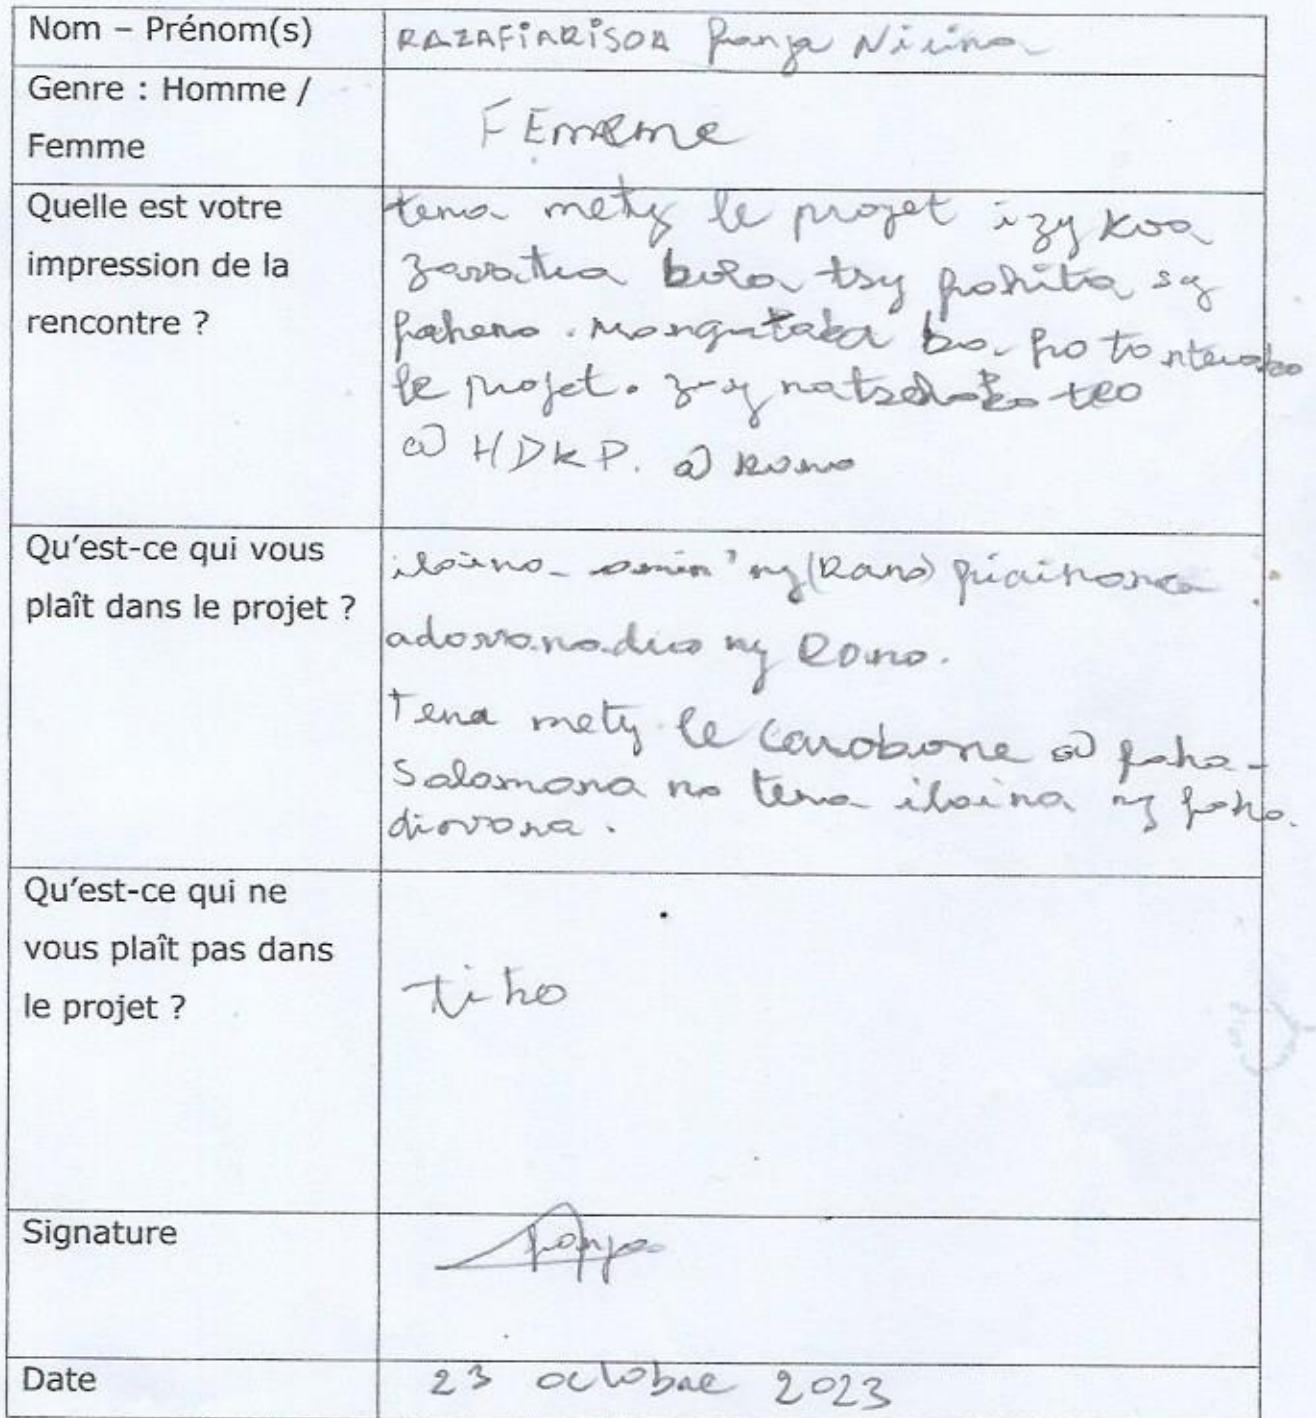 Nom – Prénom(s)
RAZAFIARISOA fanja Niiina
Genre : Homme /
Femme
FEmeme
Quelle est votre
impression de la
rencontre ?
tena mety le projet izy koa
zava tra bola tsy fahita sy
faheno.
le projet. zay teo
@ HDKP. @ Rano
Qu'est-ce qui vous
plaît dans le projet ?
ilaina amin'ny (Rano) fiainana
ny Rano.
Tena mety le carobone @ faha-
Salamana no tena ilaina ny faha
diovana.
Qu'est-ce qui ne
vous plaît pas dans
le projet ?
tiko
Signature
fanja
Date
23 octobre 2023